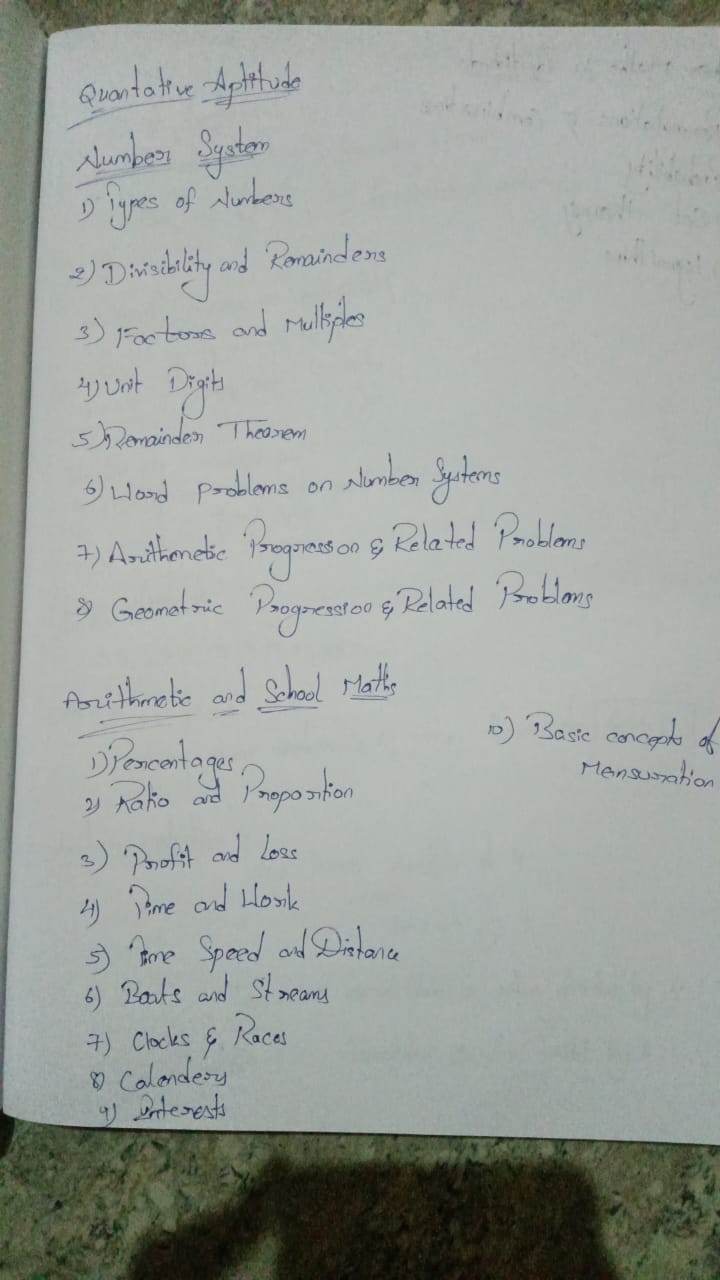 Quantative Aptitude
Number System
1) Types of Numbers
2) Divisibility and Remainders
3) Factors and Multiples
4) Unit Digits
5) Remainder Theorem
6) Word Problems on Number Systems
7) Arithmetic Progression & Related Problems
8) Geometric Progression & Related Problems
Arithmetic and School Maths
1) Percentages
2) Ratio and Proportion
3) Profit and Loss
4) Time and Work
5) Time Speed and Distance
6) Boats and Streams
7) Clocks & Races
8) Calenders
9) Interests
10) Basic concepts of
Mensuration